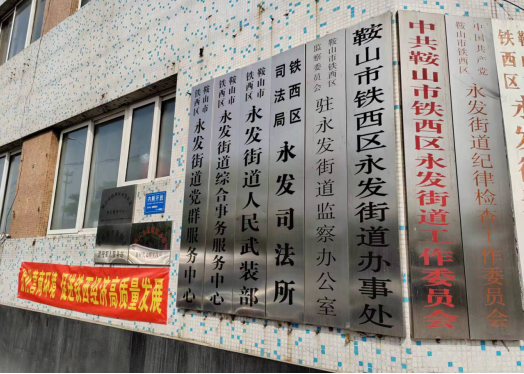 鞍山市铁西区
永发街道党群服务中心
鞍山市铁西区
永发街道综合事务服务中心
鞍山市铁西区
永发街道人民武装部
铁西区司法局
永发司法所
鞍山市铁西区监察委员会
驻永发街道监察办公室
鞍山市铁西区永发街道办事处
中共鞍山市铁西区永发街道工作委员会
中国共产党鞍山市铁西区
永发街道纪律检查工作委员会
促进铁西经济高质量发展